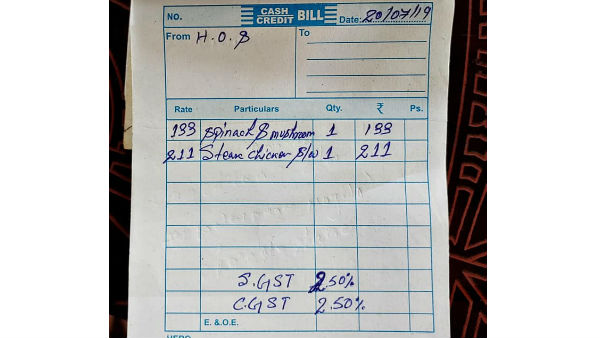 NO. CASH CREDIT BILL Date: 20/07/19
From H.O.S To
Rate Particulars Qty. ₹ Ps.
133 Spinach & mushroom 1 133
211 Steam chicken S/w 1 211
S.GST 2.50%
C.GST 2.50%
E. &.O.E.